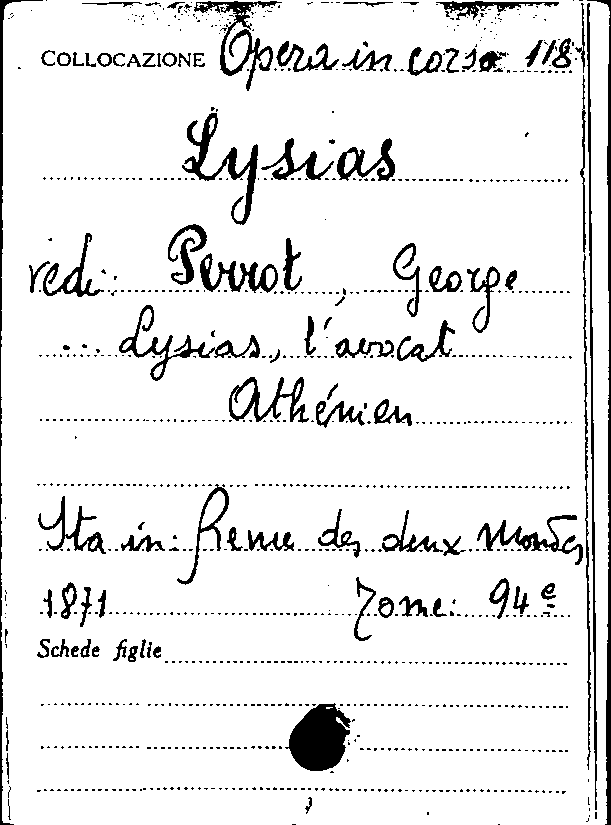 COLLOCAZIONE Opera in corso 118
Lysias
vedi: Perrot, George
... Lysias, l'avocat
Athénien
Sta in: Revue des deux Mondes
1871 Tome: 94e
Schede figlie